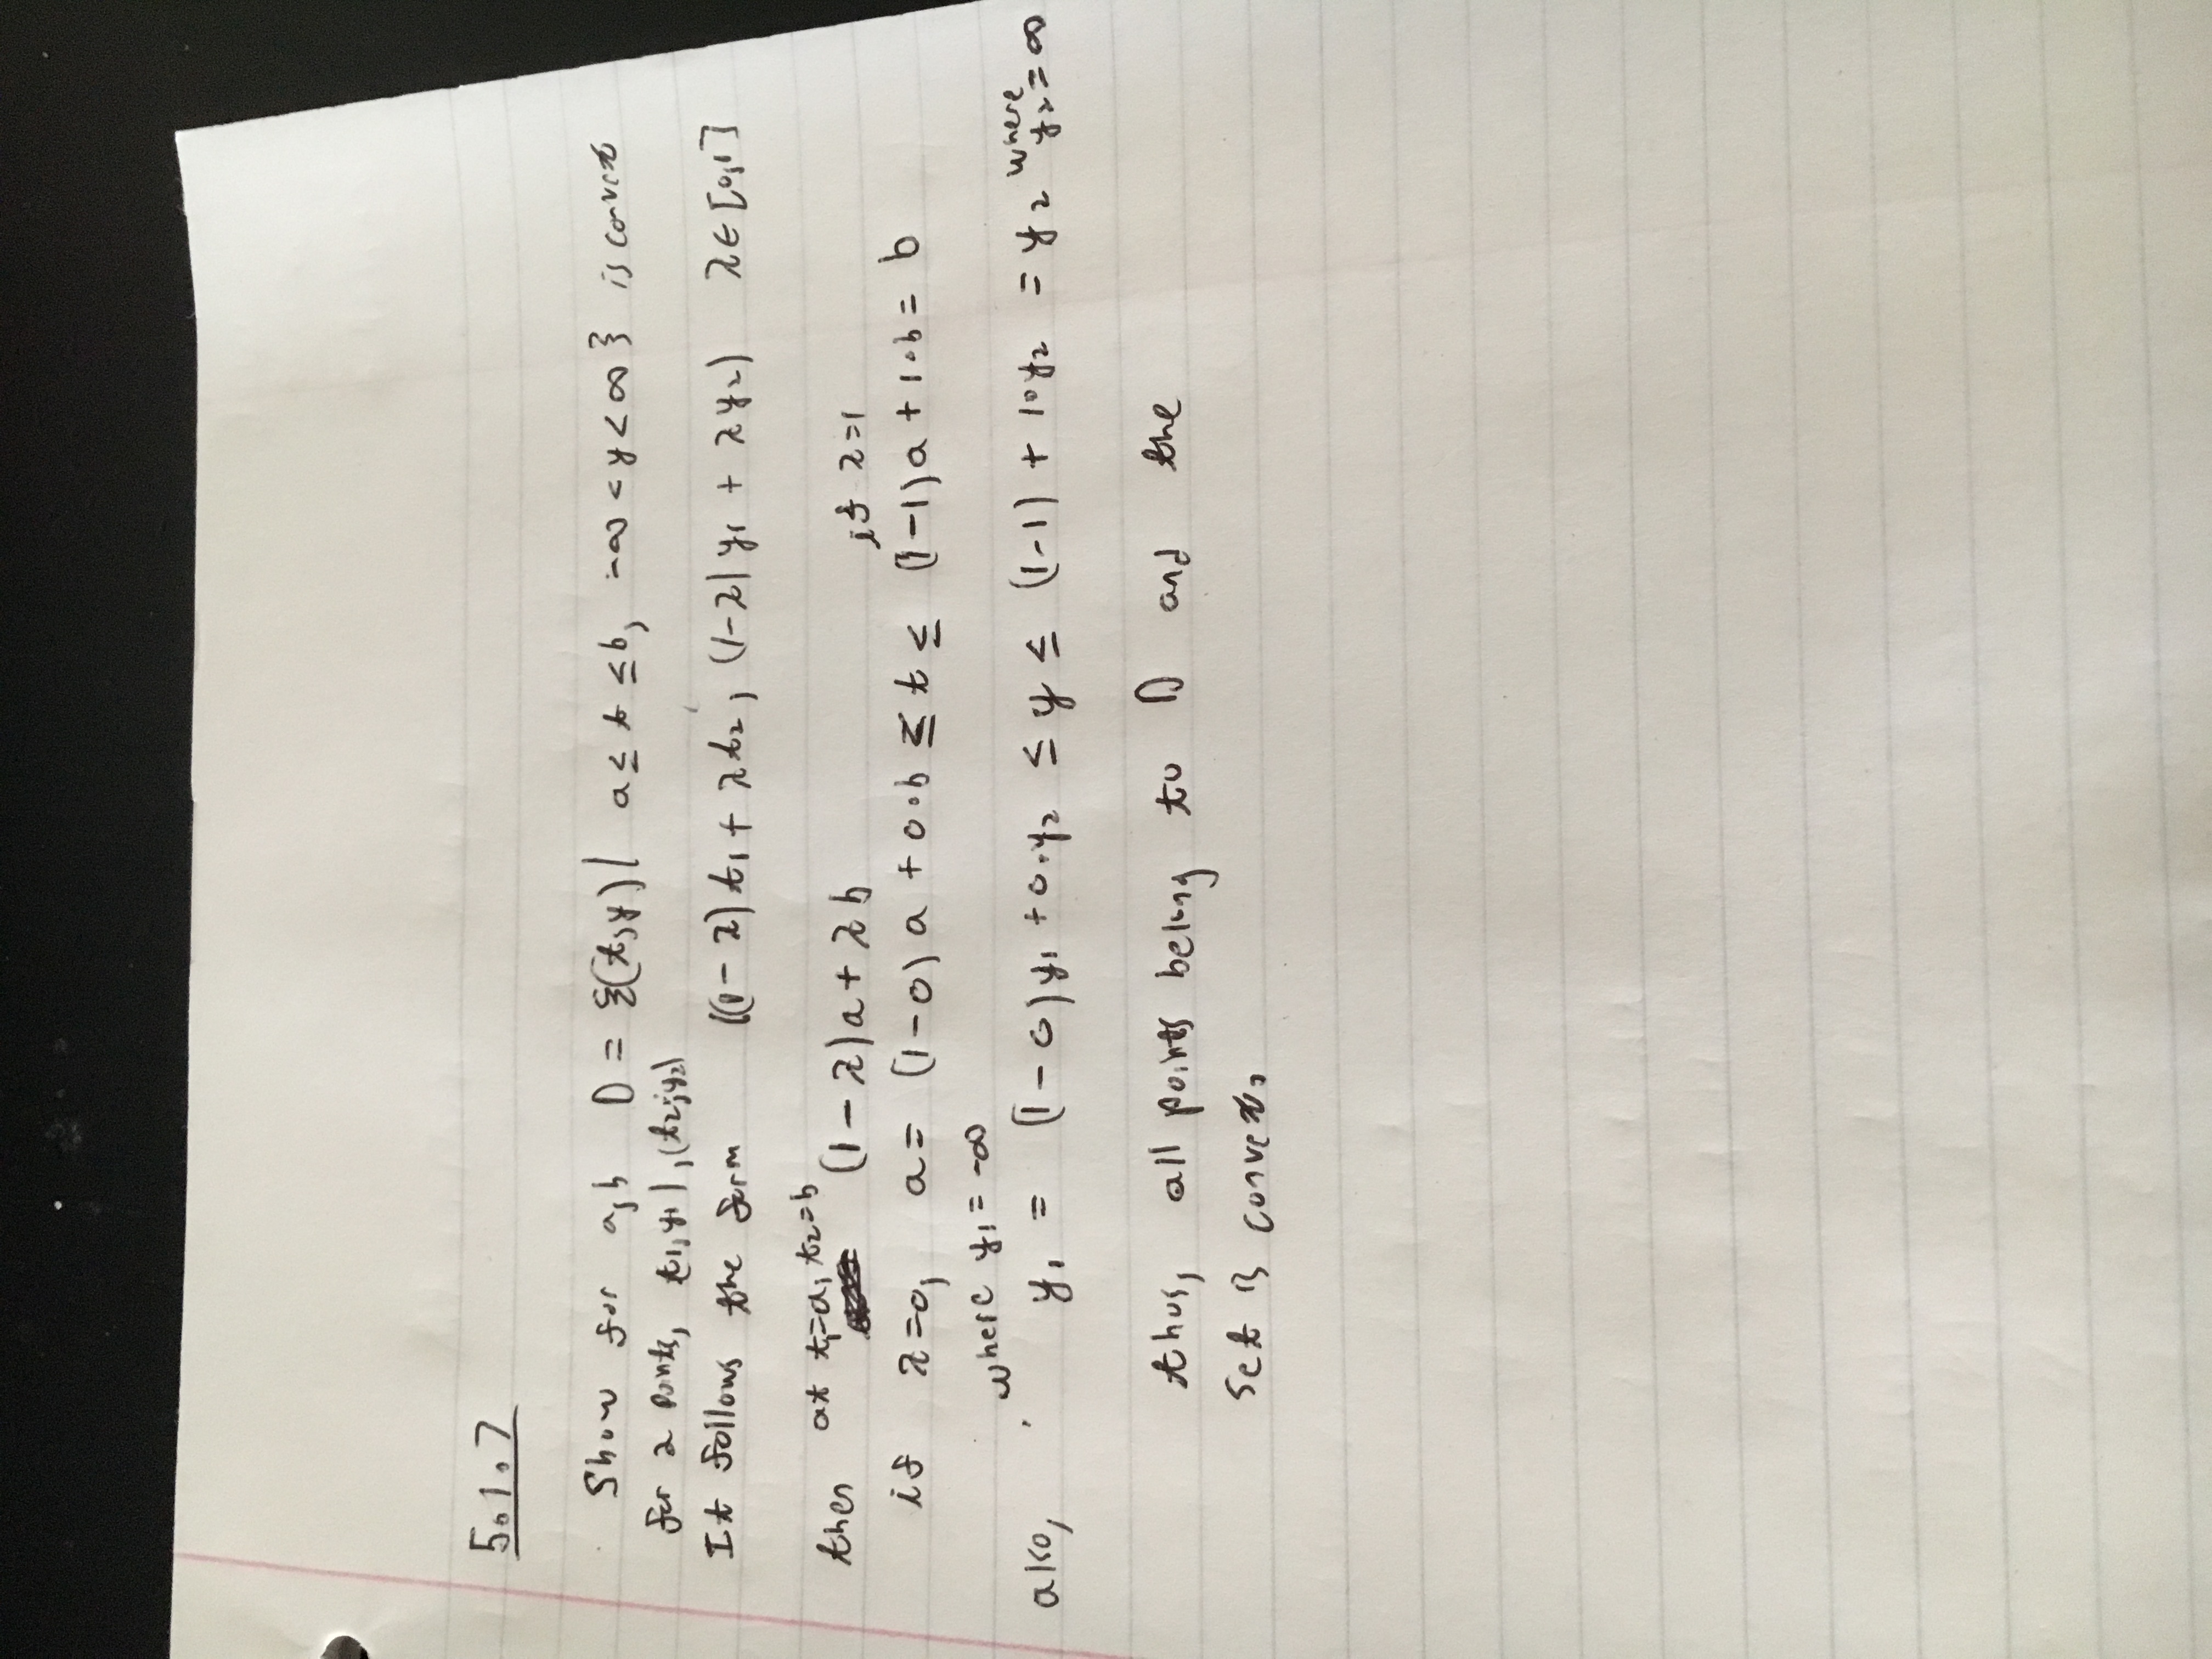 5.1.7
Show for a,b D = {(t,y)| a ≤ t ≤ b, -∞ < y < ∞} is convex
for 2 points, t1,y1), (t2,y2)
It follows the form ((1-λ)t1 + λt2, (1-λ)y1 + λy2) λ∈[0,1]
then at t1=a, t2=b (1-λ)a + λb if λ=1
if λ=0, a = (1-0)a + 0·b ≤ t ≤ (1-1)a + 1·b = b
where y1 = -∞
also, y1 = (1-0)y1 + 0·y2 ≤ y ≤ (1-1) + 1·y2 = y2 where y2 = ∞
thus, all points belong to D and the
set is convex.